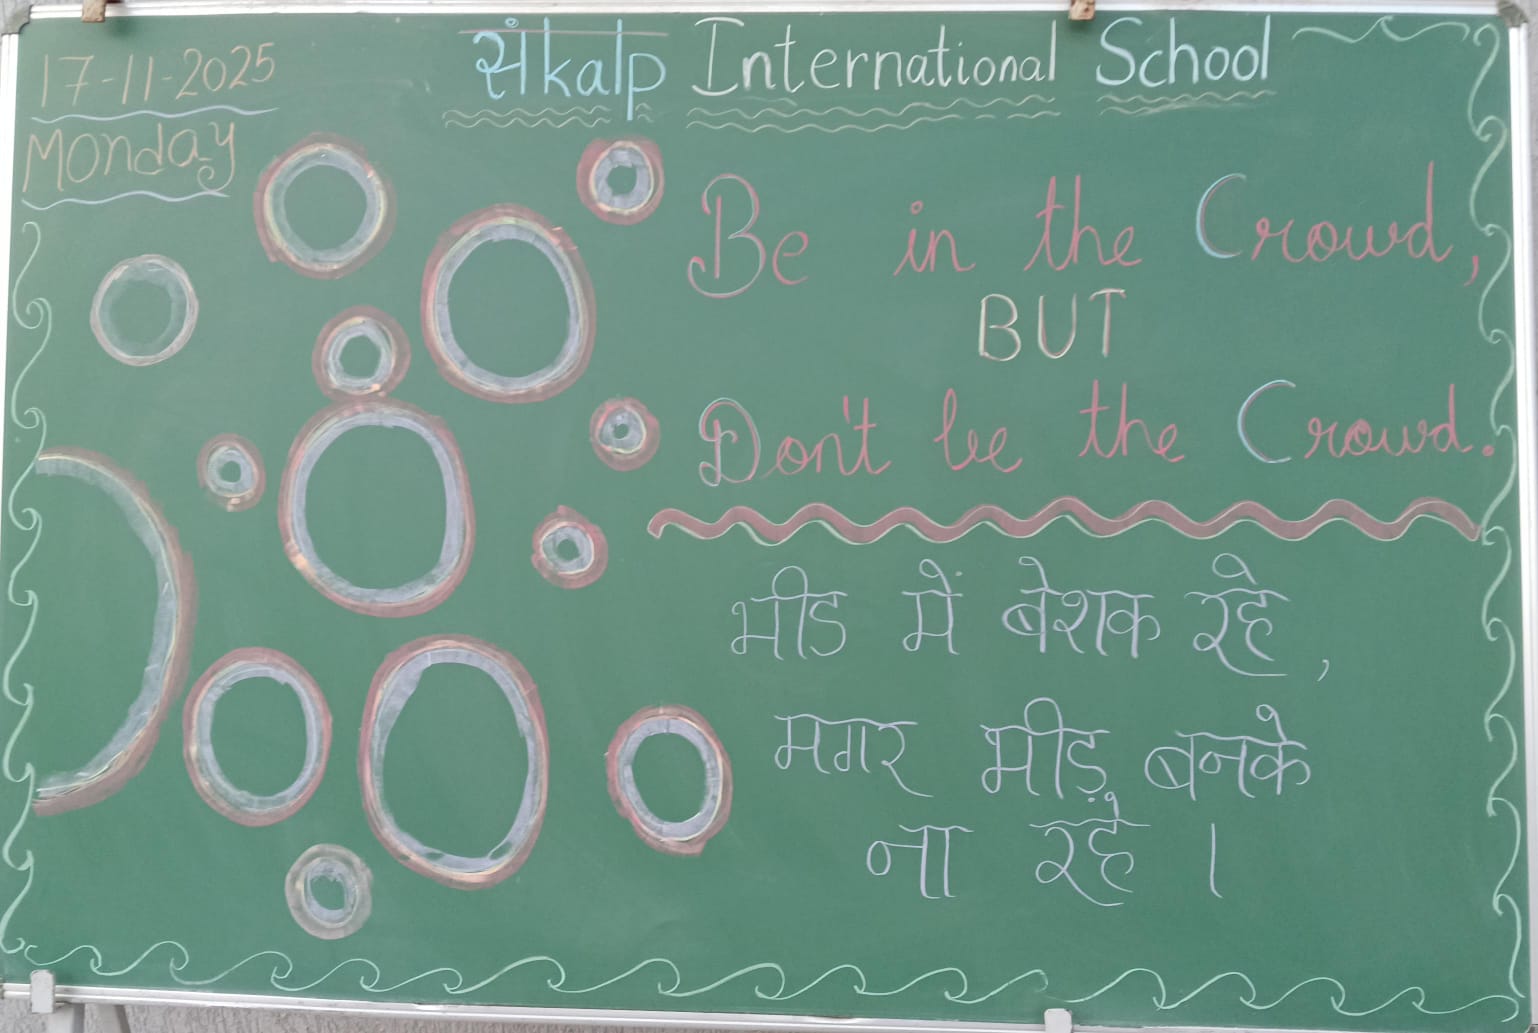 17-11-2025
Monday
संkalp International School
Be in the Crowd,
BUT
Don't be the Crowd.
भीड में बेशक रहे,
मगर भीड़ बनके
ना रहे ।